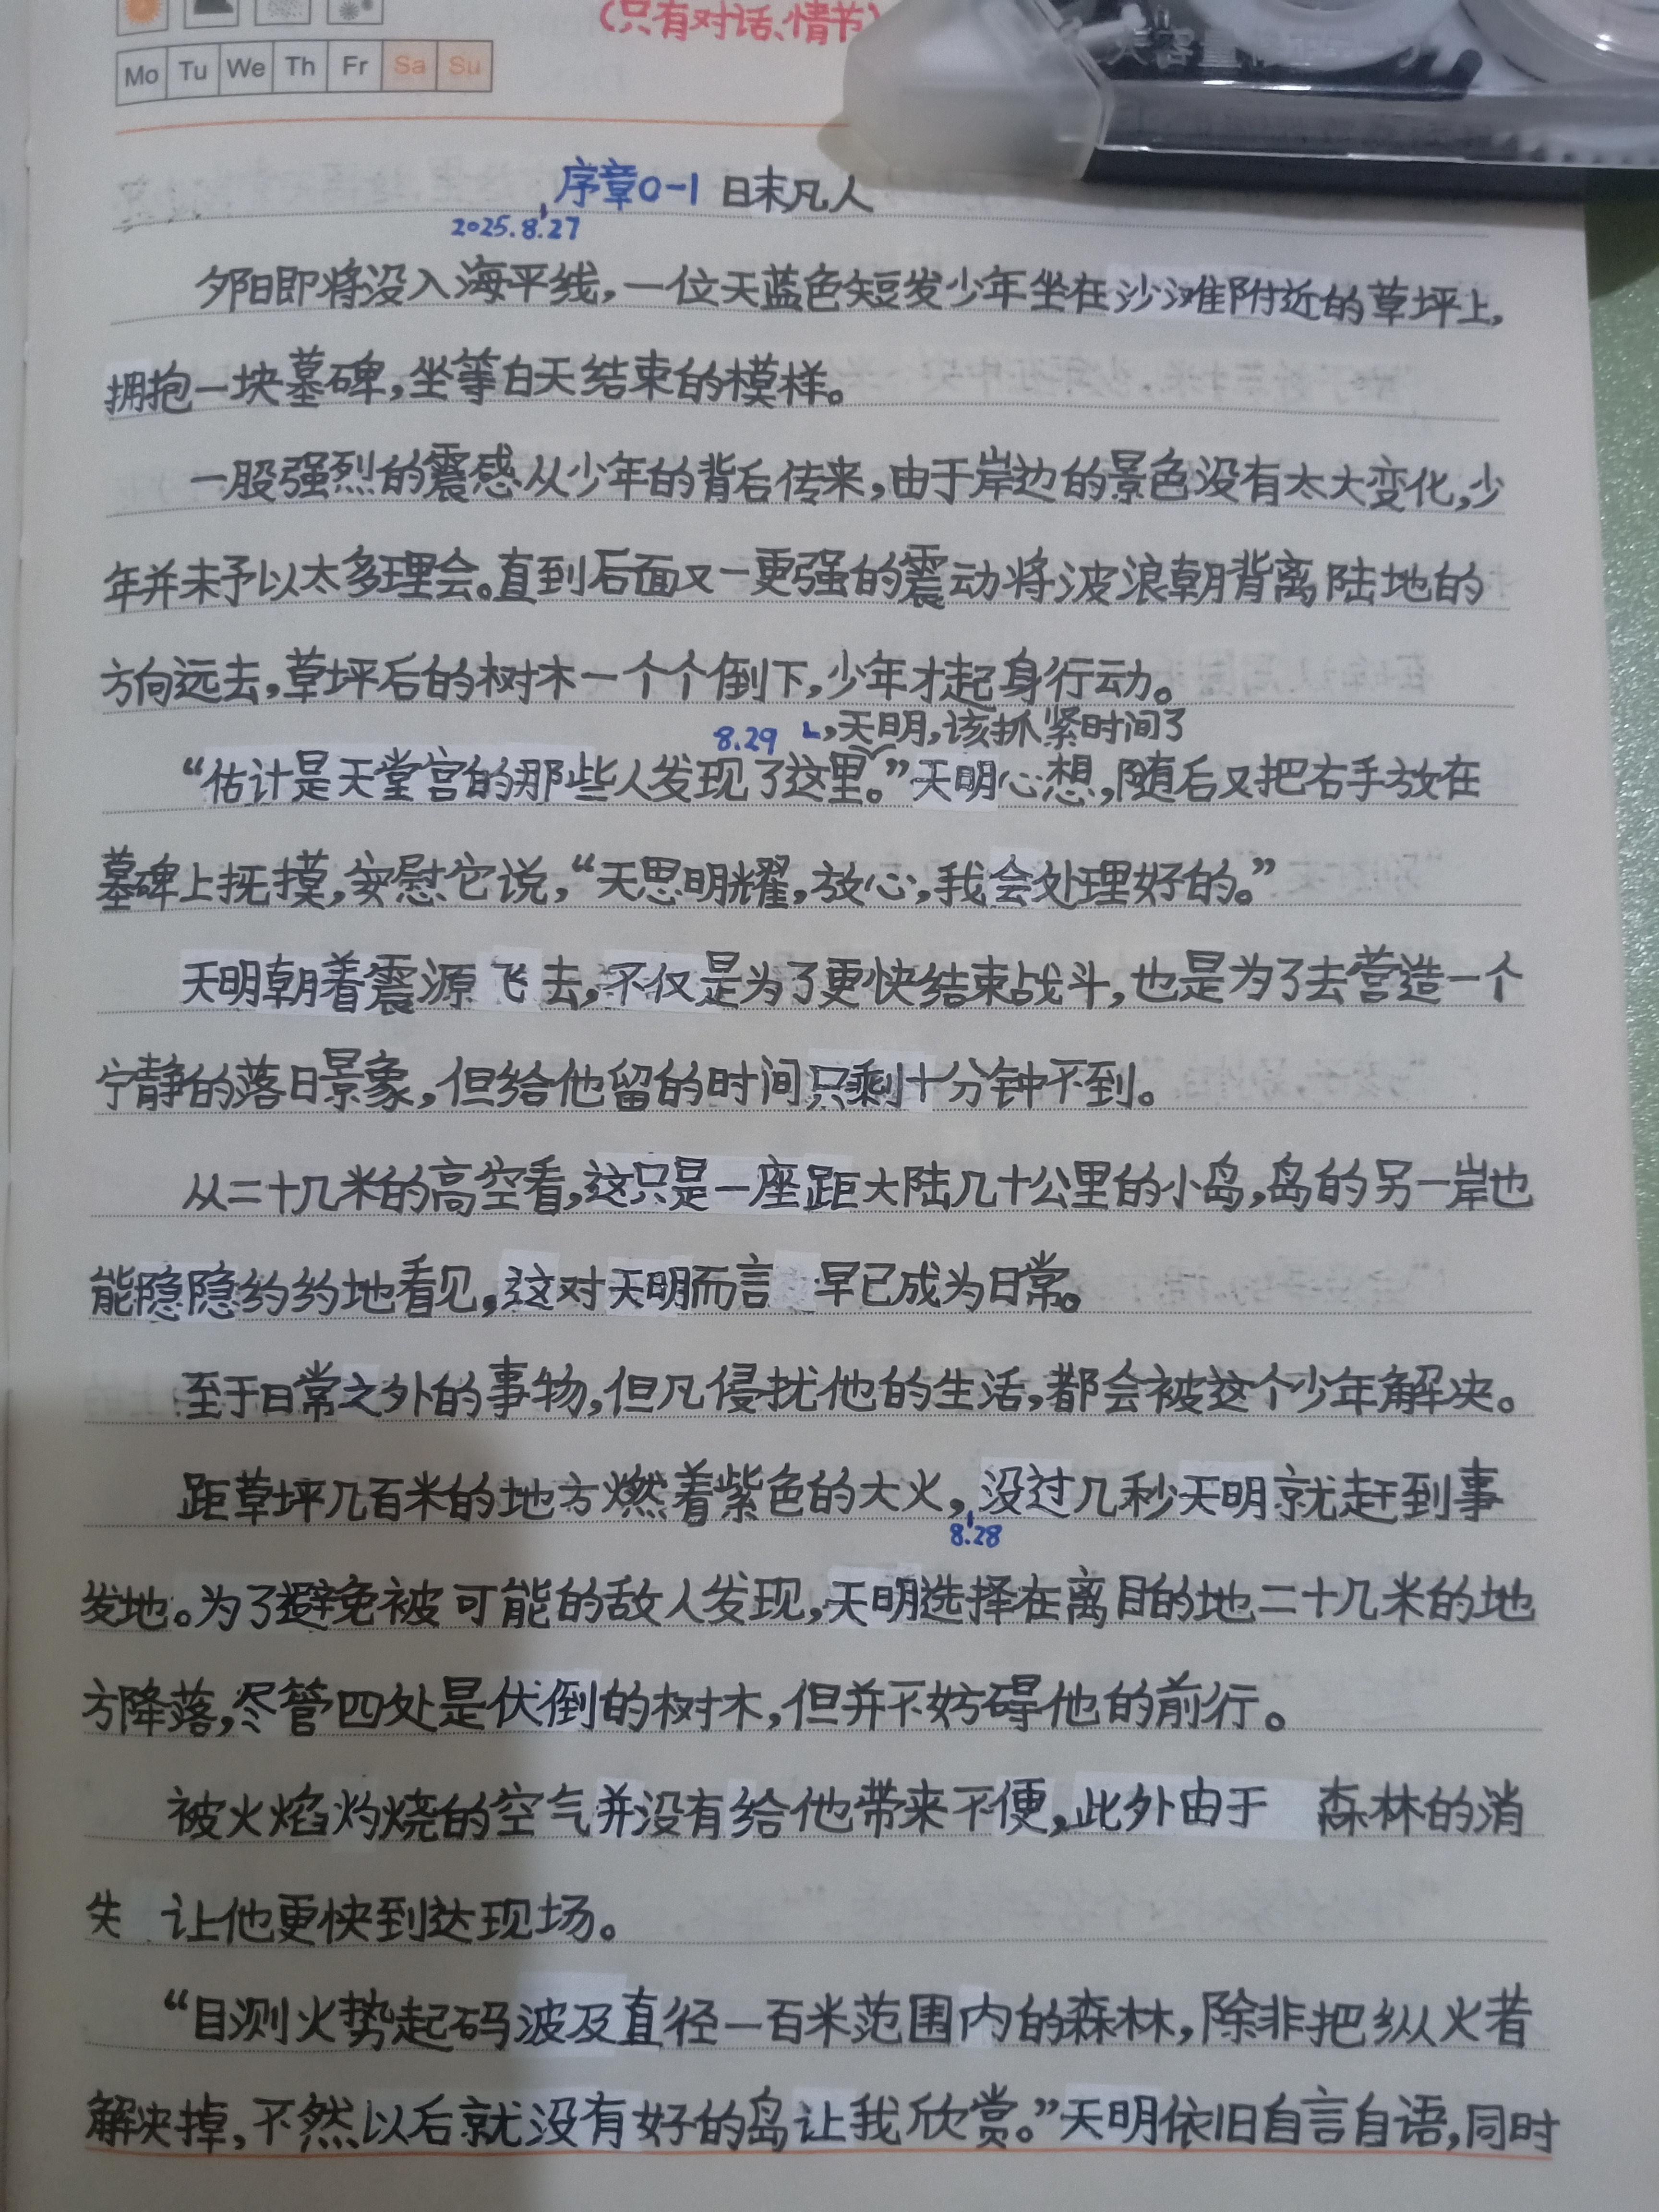 (只有对话、情节)
Mo Tu We Th Fr Sa Su
大容量
序章0-1 日末凡人
2025.8.27
夕阳即将没入海平线,一位天蓝色短发少年坐在沙滩附近的草坪上,
拥抱一块墓碑,坐等白天结束的模样。
一股强烈的震感从少年的背后传来,由于岸边的景色没有太大变化,少
年并未予以太多理会。直到后面又一更强的震动将波浪朝背离陆地的
方向远去,草坪后的树木一个个倒下,少年才起身行动。
8.29 ,天明,该抓紧时间了
“估计是天堂宫的那些人发现了这里。”天明心想,随后又把右手放在
墓碑上抚摸,安慰它说,“天思明耀,放心,我会处理好的。”
天明朝着震源飞去,不仅是为了更快结束战斗,也是为了去营造一个
宁静的落日景象,但给他留的时间只剩十分钟不到。
从二十几米的高空看,这只是一座距大陆几十公里的小岛,岛的另一岸也
能隐隐约约地看见,这对天明而言 早已成为日常。
至于日常之外的事物,但凡侵扰他的生活,都会被这个少年解决。
距草坪几百米的地方燃着紫色的大火,没过几秒天明就赶到事
8.28
发地。为了避免被可能的敌人发现,天明选择在离目的地二十几米的地
方降落,尽管四处是伏倒的树木,但并不妨碍他的前行。
被火焰灼烧的空气并没有给他带来不便,此外由于 森林的消
失 让他更快到达现场。
“目测火势起码波及直径一百米范围内的森林,除非把纵火者
解决掉,不然以后就没有好的岛让我欣赏。”天明依旧自言自语,同时